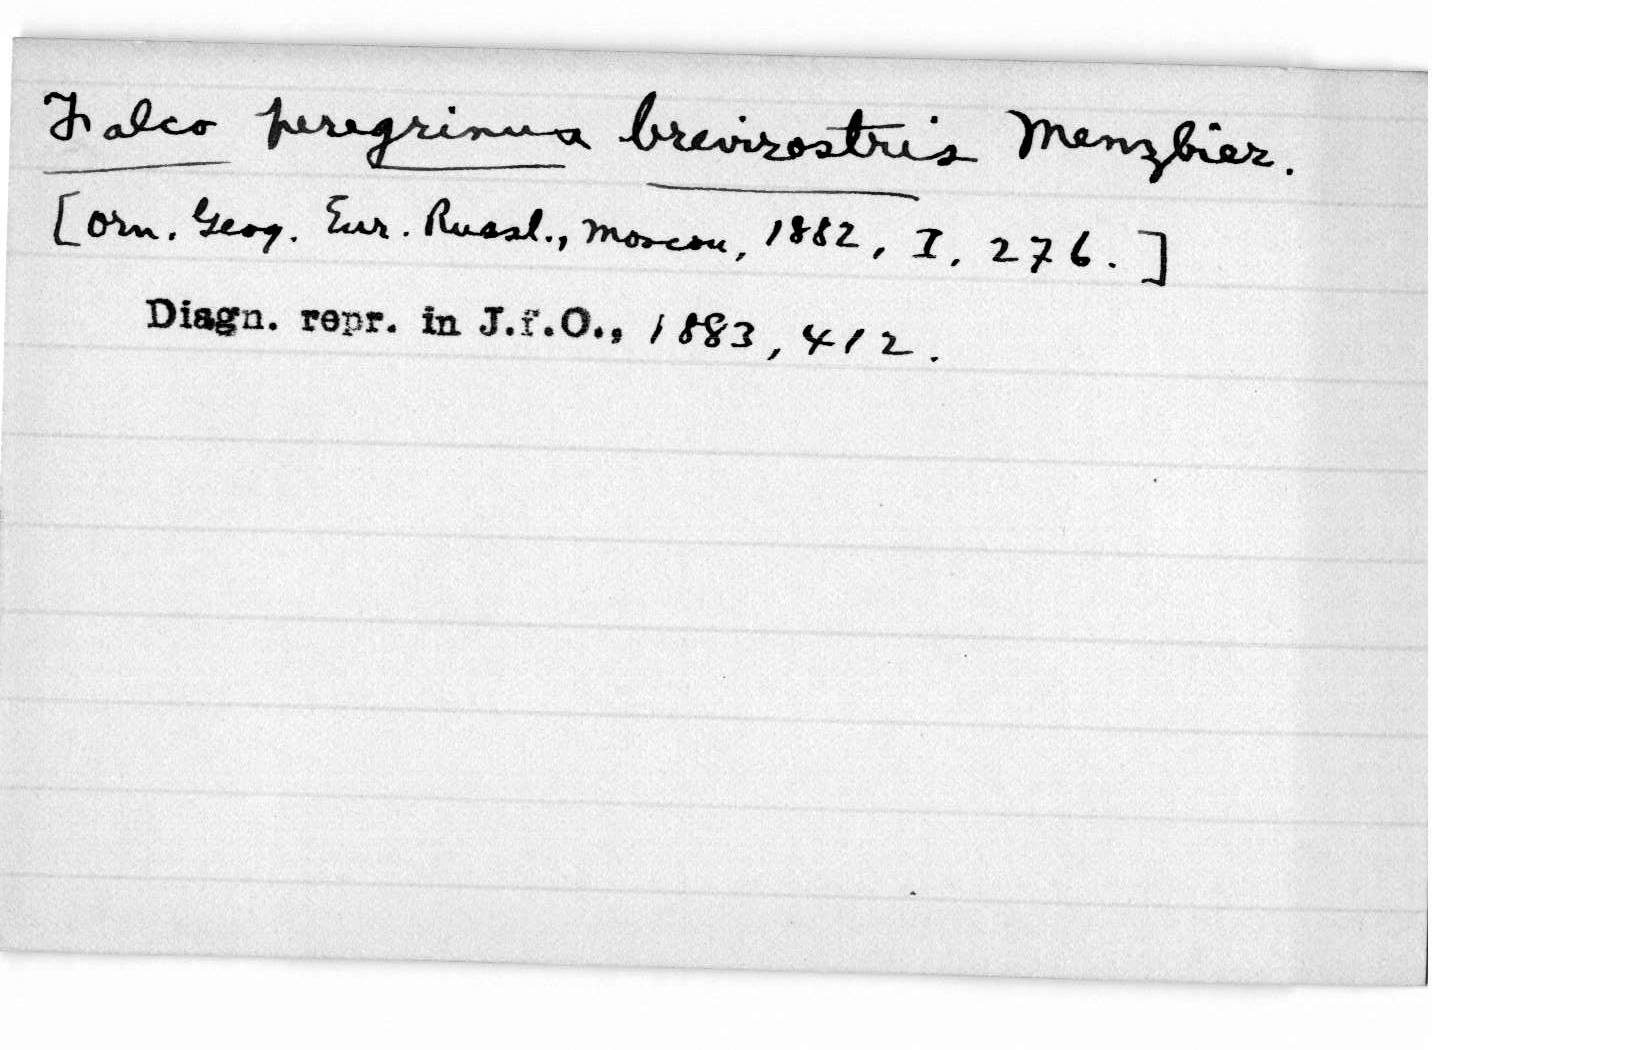 Falco peregrinus brevirostris Menzbier.
[Orn. Geog. Eur. Russl., Moscou, 1882, I. 276.]
Diagn. repr. in J.f.O., 1883, 412.